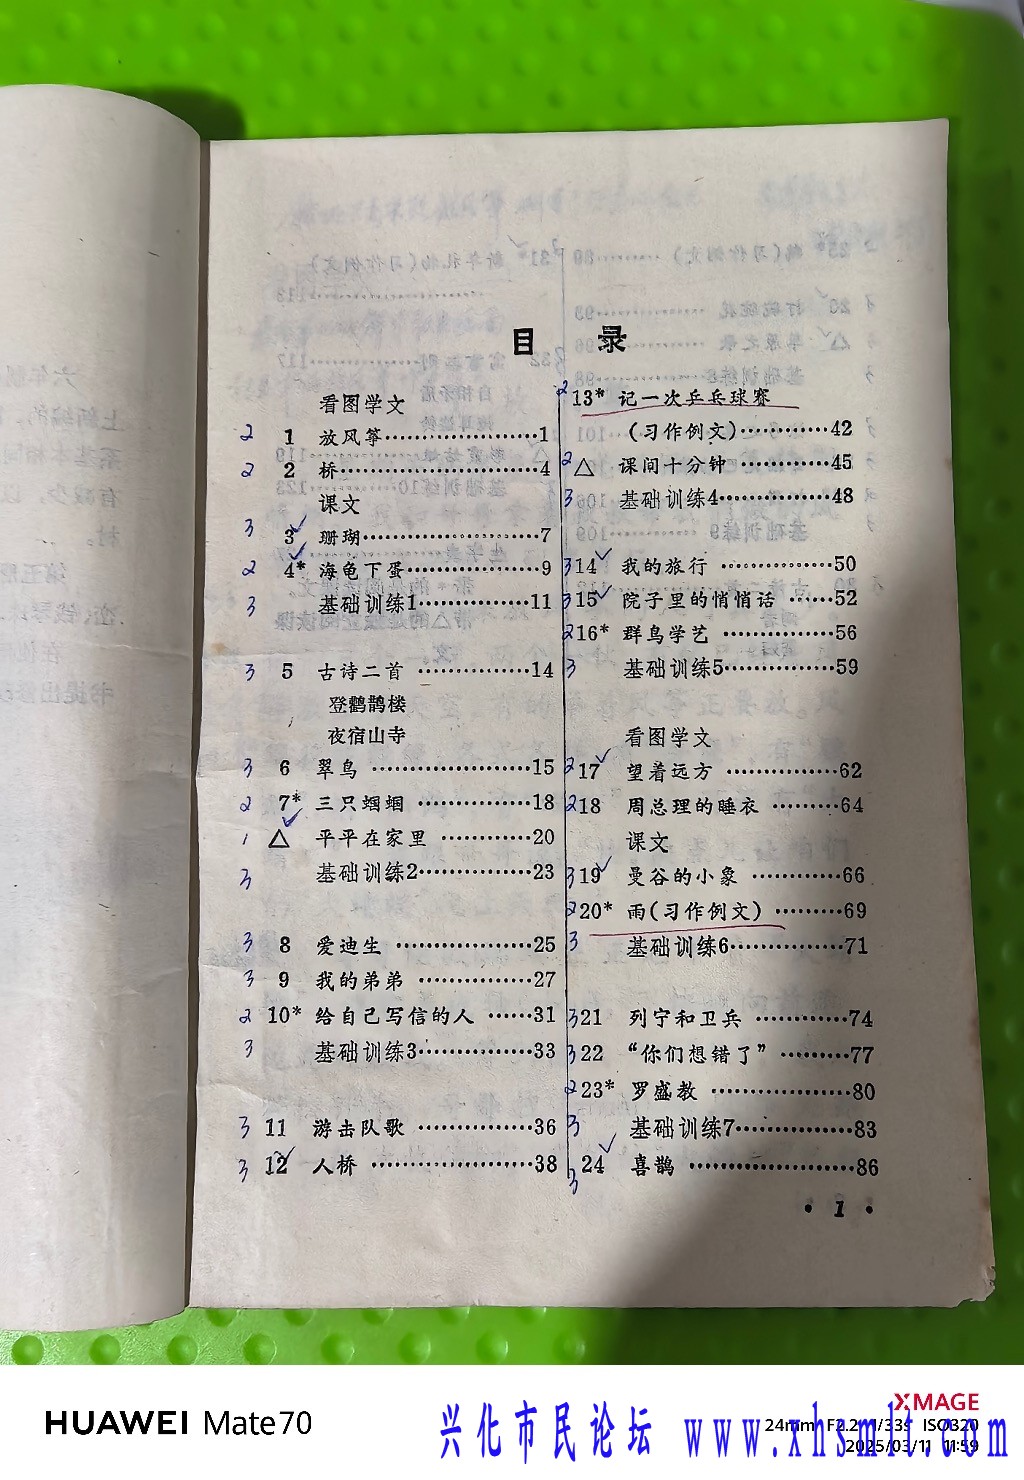 目 录
看图学文
2 1 放风筝……………………1
2 2 桥……………………4
课文
3 3 珊瑚……………………7
2 4* 海龟下蛋……………………9
3 基础训练1……………………11
3 5 古诗二首……………………14
登鹳鹊楼
夜宿山寺
3 6 翠鸟……………………15
2 7* 三只蝈蝈……………………18
1 △ 平平在家里……………………20
3 基础训练2……………………23
3 8 爱迪生……………………25
3 9 我的弟弟……………………27
2 10* 给自己写信的人……31
3 基础训练3……………………33
3 11 游击队歌……………………36
3 12 人桥……………………38
2 13* 记一次乒乓球赛
(习作例文)……………………42
2 △ 课间十分钟……………………45
3 基础训练4……………………48
3 14 我的旅行……………………50
3 15 院子里的悄悄话……52
2 16* 群鸟学艺……………………56
3 基础训练5……………………59
看图学文
2 17 望着远方……………………62
2 18 周总理的睡衣………64
课文
3 19 曼谷的小象……………………66
2 20* 雨(习作例文)………69
3 基础训练6……………………71
3 21 列宁和卫兵……………………74
3 22 “你们想错了”………77
2 23* 罗盛教……………………80
3 基础训练7……………………83
3 24 喜鹊……………………86
• 1 •
HUAWEI Mate70
XMAGE
24mm F2.2 1/33s ISO320
2025/03/11 11:59
兴化市民论坛 www.xhsmlt.com